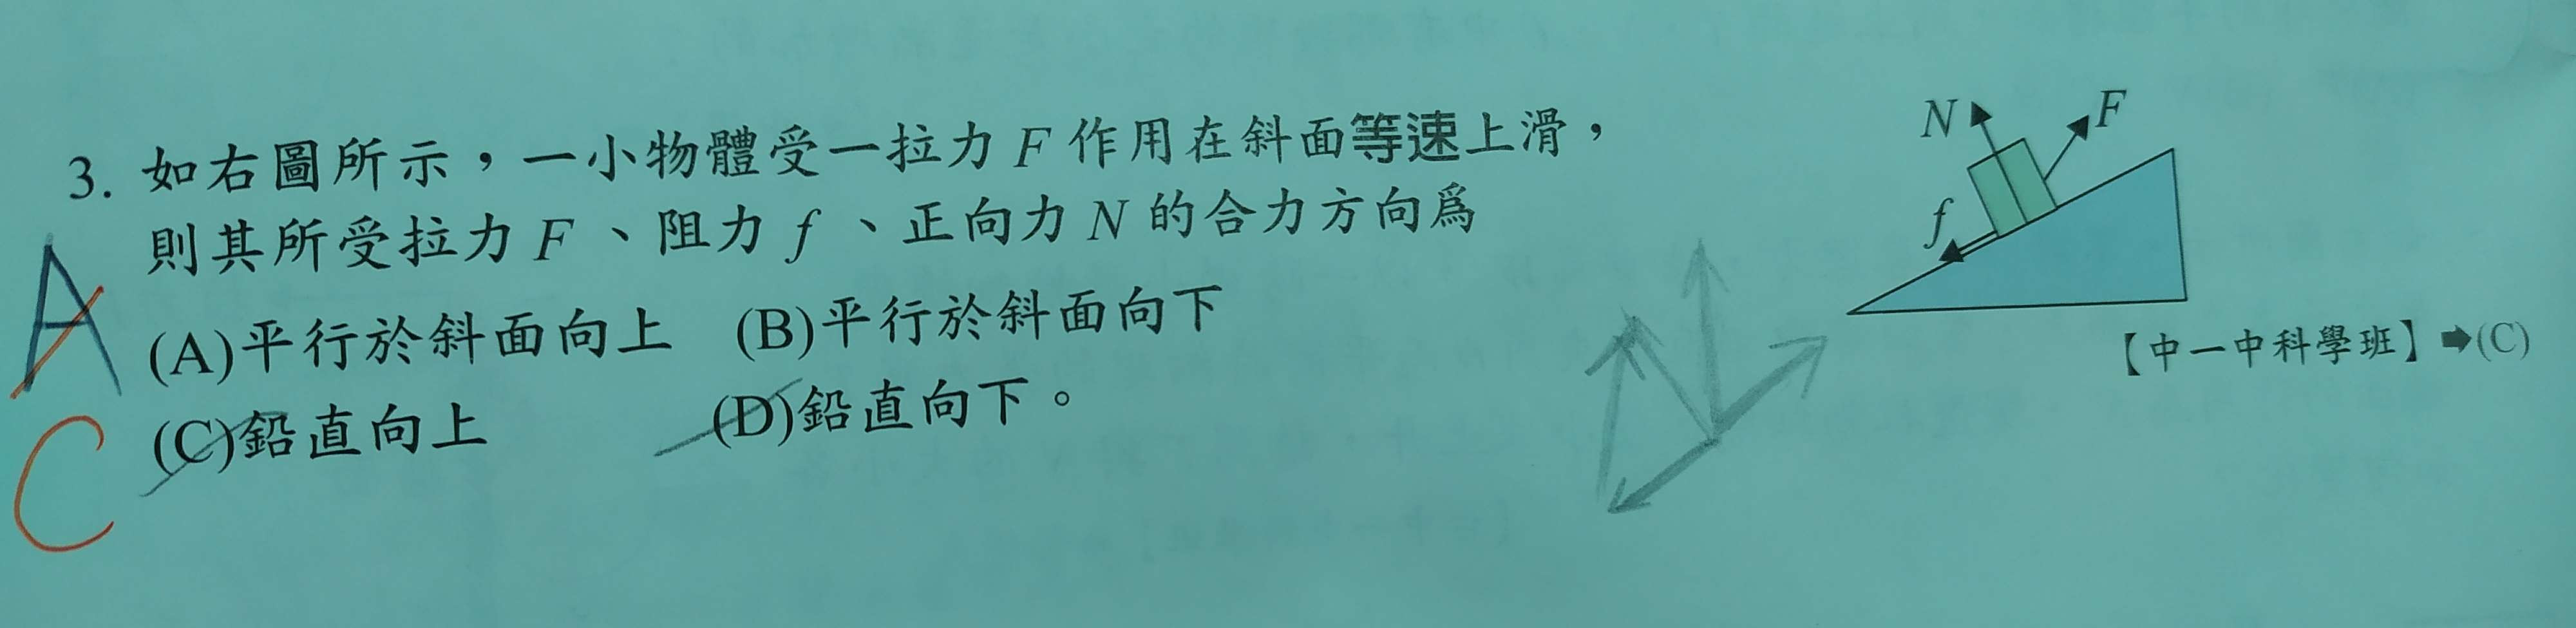 3. 如右圖所示，一小物體受一拉力 F 作用在斜面等速上滑，
則其所受拉力 F 、阻力 f 、正向力 N 的合力方向為
(A)平行於斜面向上 (B)平行於斜面向下
(C)鉛直向上 (D)鉛直向下。
A
C
N
F
f
【中一中科學班】➡(C)